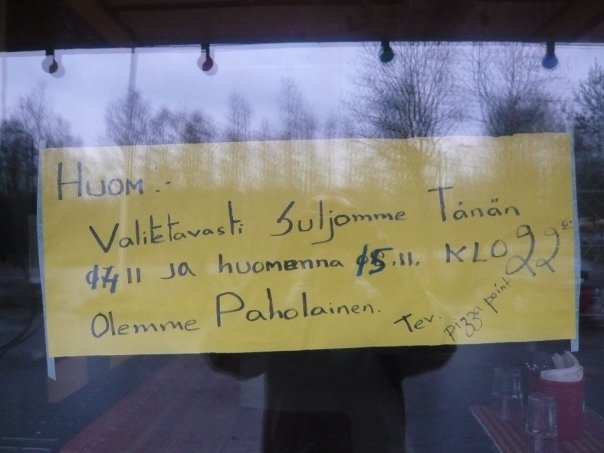 HUOM:-
Valitetavasti Suljomme Tänän
14.11 JA huomenna 15.11. KLO 22
Olemme Paholainen.
Tev. pizza point